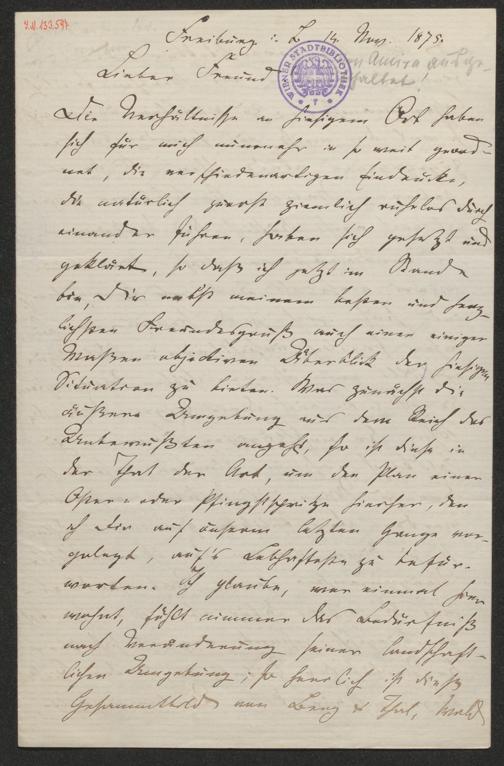 J.N. 133.597
Freiburg i. B. 14. Nov. 1875.
WIENER STADTBIBLIOTHEK
Lieber Freund
Die Verhältnisse an hiesigem Ort haben
sich für mich nunmehr in so weit geord-
net, die verschiedenartigen Eindrücke,
die natürlich zuerst ziemlich ruhelos durch
einander fuhren, haben sich gesetzt und
geklärt, so daß ich jetzt im Stande
bin, Dir nebst meinem besten und herz-
lichsten Freundesgruß auch einen einiger
Maßen objectiven Überblick der hiesigen
Situation zu bieten. Was zunächst die
äußere Umgebung aus dem Reich des
Unbewußten angeht, so ist diese in
der That der Art, um den Plan einer
Oster- oder Pfingstspritze hierher, den
ich Dir auf unserm letzten Gange vor-
gelegt, auf's Lebhafteste zu befür-
worten. Ich glaube, wer einmal hier
wohnt, fühlt nimmer das Bedürfniß
nach Veränderung seiner landschaft-
lichen Umgebung; so herrlich ist dieses
Gesammtbild von Berg & Thal, Wald